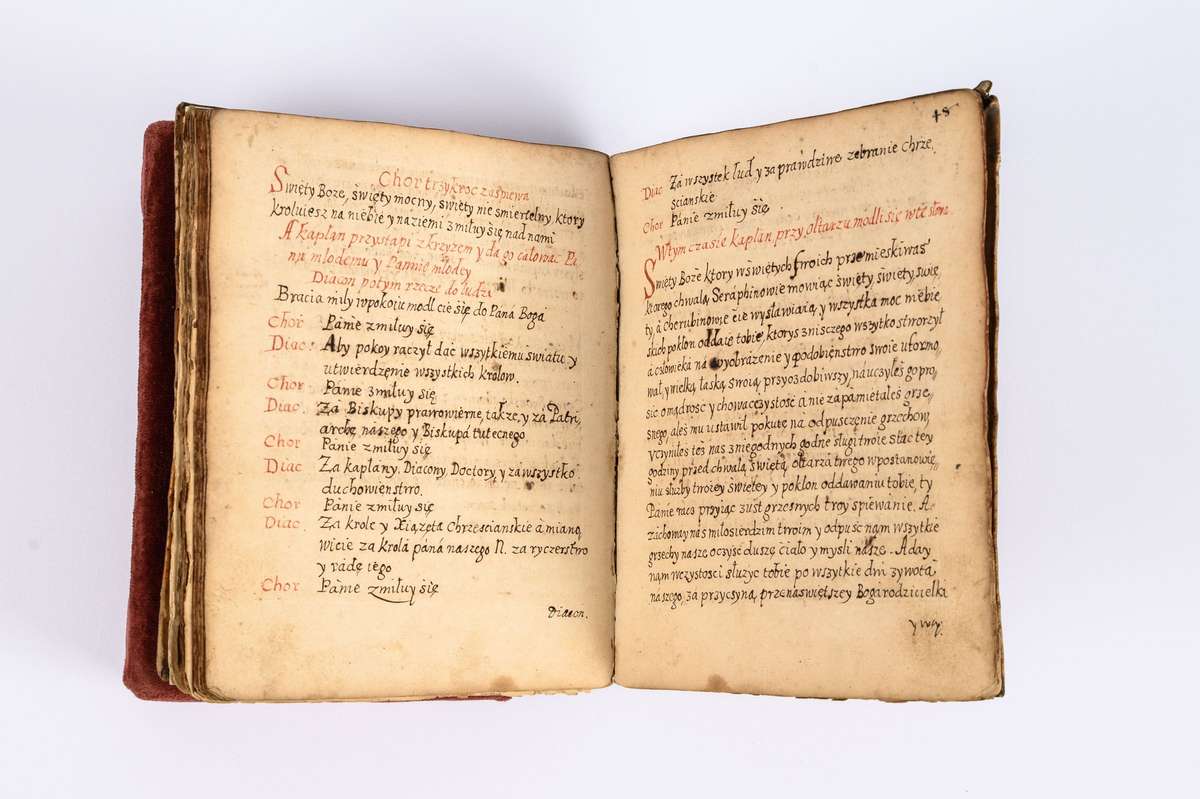 Chor trzykroc zaśpiewa
Swięty Boże, święty mocny, święty nie smiertelny, ktory
kroluiesz na niebie y naziemi zmiłuy się nad nami
A kapłan przystąpi z krzyzem y da go całowac Pa,
nu młodemu y Pannie młodey
Diacon potym rzecze do ludzi
Bracia mily w pokoiu modlcie się do Pana Boga
Chor Panie zmiłuy się
Diac: Aby pokoy raczył dać wszytkiemu światu y
utwierdzenie wszystkich krolow.
Chor Panie zmiłuy się
Diac. Za Biskupy prawowierne, także, y za Patri,
archę naszego y Biskupá tutecnego
Chor Panie zmiłuy się
Diac Za kapłany, Diacony, Doctory, y za wszystko
duchowienstwo.
Chor Panie zmiłuy się
Diac. Za krole y Xiązęta Chrześcianskie à miano,
wicie za krolá páná naszego N. za rycerstwo
y radę iego
Chor Panie zmiłuy się
Diacon.
48
Diac Zá wszystek lud y za prawdziwe zebranie chrze,
ścianskie
Chor Pánie zmiłuy się
Wtym czasie kapłan przy ołtarzu modli się w te słowa
Swięty Boże ktory w świętych swoich przemieskiwas
ktorego chwalą Seraphinowie mowiąc święty, święty, świę,
ty, à Cherubinowie cie wysławiaią y wszystka moc niebie,
skich poklon oddaie tobie, ktorys z niszczego wszytko stworzył
á człowieka na wyobrażenie y podobienstwo swoie uformo,
wał, y wielką łaską swoią, przyozdobiwszy, nauczyłeś go pro,
sic o mądrosc y chowac czystość a nie zapamiętałeś grze,
snego, aleś mu ustawił pokutę na odpusczęnie grzechow,
vczyniłeś też nas z niegodnych godne sługi twoie stac tey
godziny przed chwałą świętą ołtarzá twego w postanowie,
niu służby twoiey świętey y poklon oddawaniu tobie, ty
Panie racz przyiąc z ust grzesnych troy spiewanie. A
zachoway nas miłosierdzim twoim y odpuść nam wszytkie
grzechy nasze oczyść duszę ciało y mysli nasze. A day
nam w czystosci służyc tobie po wszytkie dni żywotá
naszego, za przyczyną, przenaświętszey Bogarodzicielki